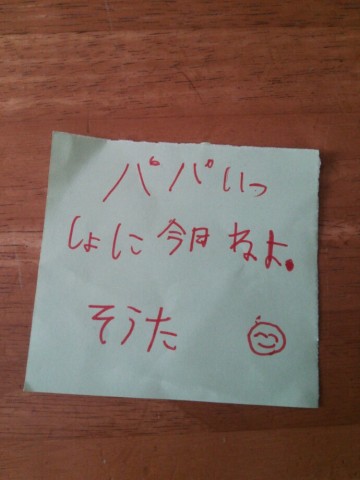 パパいっ
しょに今日ねよ。
そうた